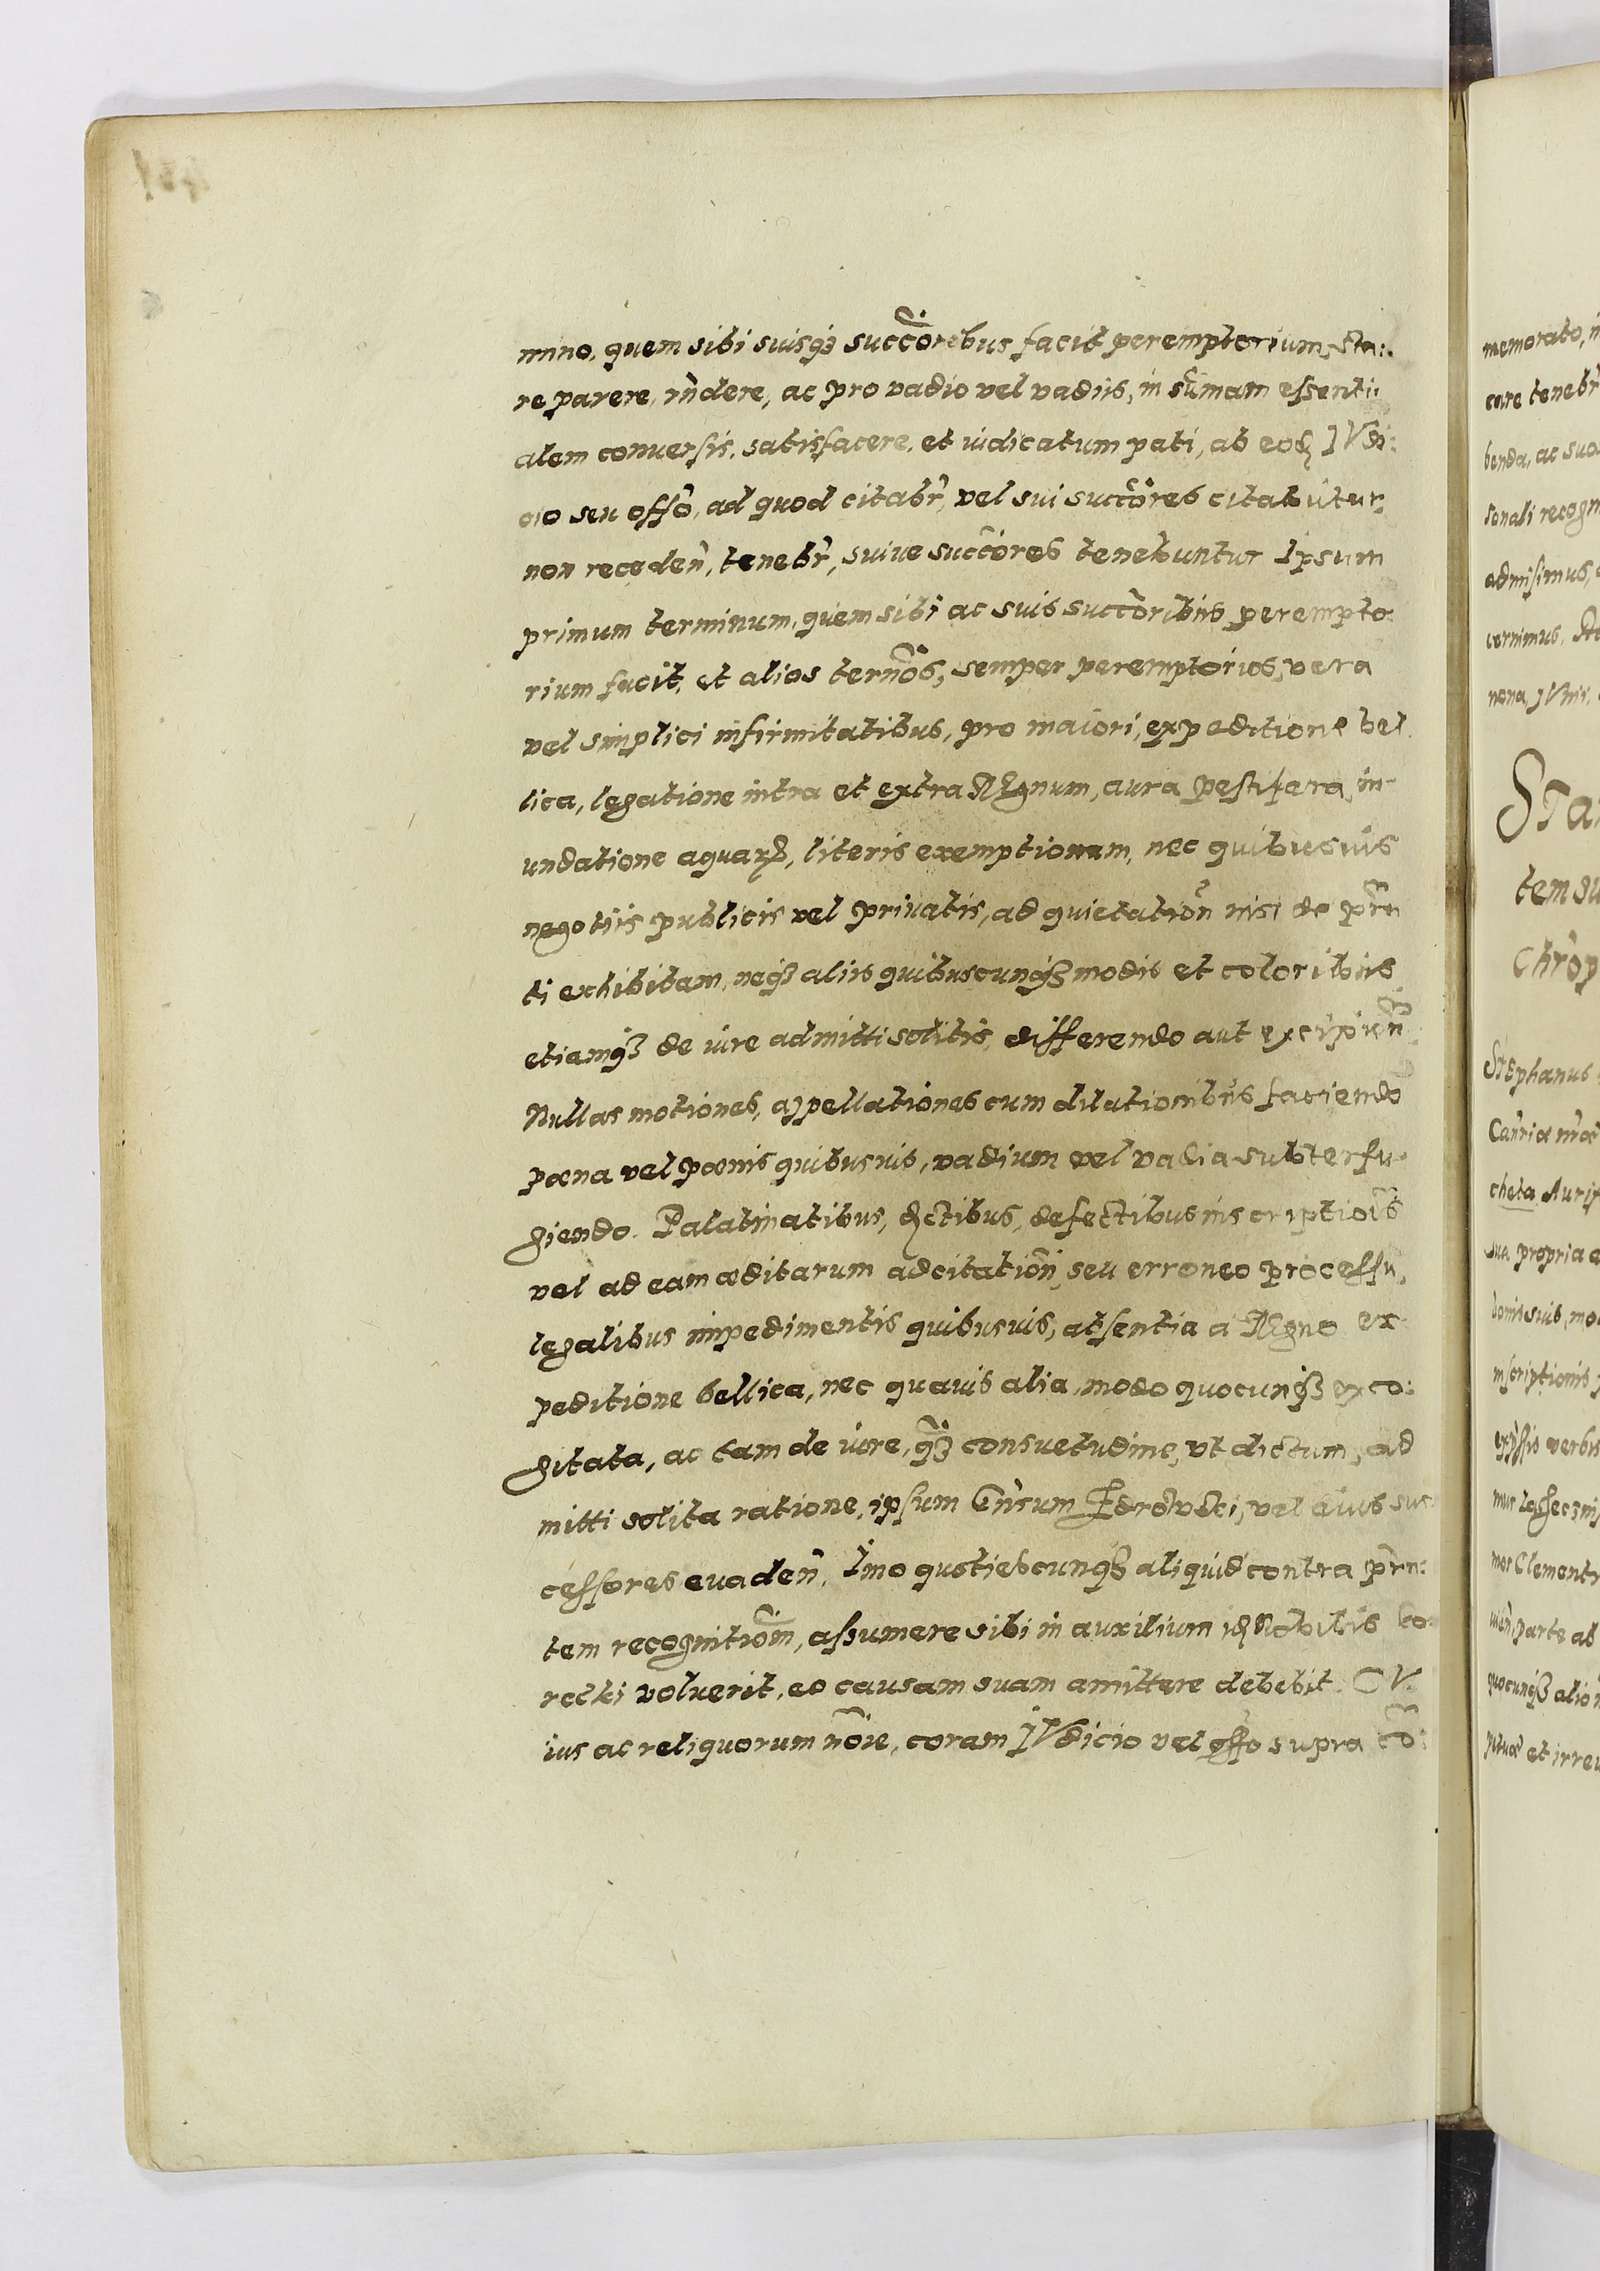 mino, quem sibi suisq3 succoribus facit peremptorium, sta:
re parere, rndere, ac pro vadio vel vadiis, in sumam essenti:
alem conuersis, satisfacere, et iudicatum pati, ab eod IVdi:
cio seu offo, ad quod citabr, vel sui succores citabutur,
non receden, tenebr, suiue succores tenebuntur Ipsum
primum terminum, quem sibi ac suis succoribus perempto:
rium facit, et alios termos, semper peremptorios, vera
vel simplici infirmitatibus, pro maiori, expeditione bel
lica, legatione intra et extra REgnum, aura pestifera, in-
undatione aquar, literis exemptionum, nec quibusuis
negotiis publicis vel priuatis, ad quietation nisi de prn
ti exhibitam, neq3 aliis quibuscunq3 modis et coloribus
etiamq3 de iure admitti solitis, differendo aut excipien
Nullas motiones, appellationes cum dilationibus faciendo
pœna vel pœnis quibusuis, vadium vel vadia subterfu-
giendo. Palatinatibus, dctibus, defectibus inscriptiois
vel ad eam æditarum adcitation, seu erroneo processu,
legalibus impedimentis quibusuis, absentia a REgno ex
peditione bellica, nec quauis alia, modo quocunq3 exco:
gitata, ac tam de iure, q3 consuetudine, vt dictum, ad
mitti solita ratione, ipsum Ensum vel eius suc
cessores euaden, Imo quotiescunq3 aliquid contra prn:
tem recognitiom, assumere sibi in auxilium id Nobilis
voluerit, eo causam suam amittere debebit. CV:
ius ac reliquorum noie, coram IVdicio vel offo supra co:
memorato, i
care tenebr
benda, ac suo
sonali recogn
admisimus,
cernimus.
nona, IVnii.
STa
tem su
Chrop
STephanus
cheta Aurif
sua propria
bonis suis, mo
inscriptionis
verbis
mor Clement
parte ab
quocunq3 alio
et irreu